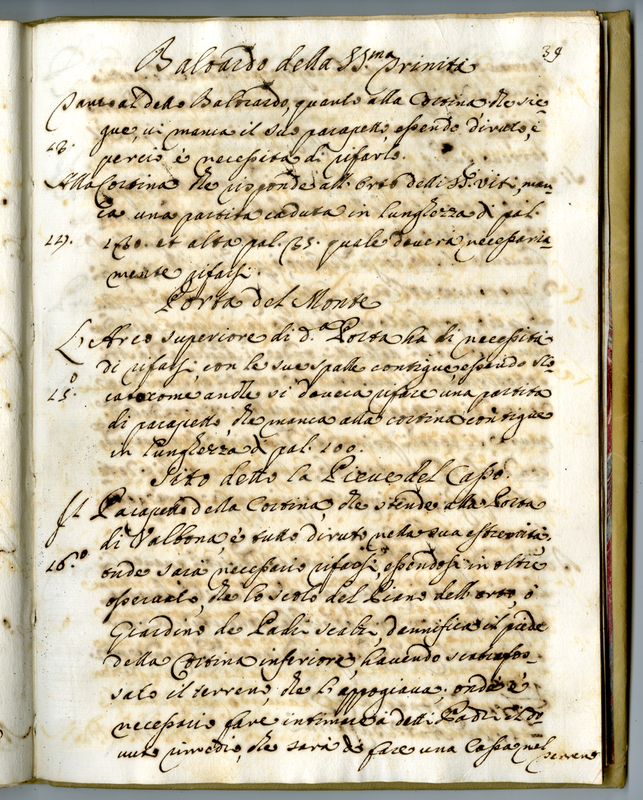 39
Baloardo della SS.ma Trinità
Tanto al detto Baloardo, quanto alla Cortina che sie-
gue, vi manca il suo parapetto, essendo diruto, e
13.
perciò è necessità di rifarlo.
Alla Cortina che risponde all'Orto delli SS. Viti, man-
ca una partita caduta in lunghezza di pal.
14.
et alta pal. quale doverà necessaria-
mente rifarsi.
Porta del Monte
L'Arco superiore di d.a Porta ha di necessità
di rifarsi con le sue spalle contigue essendo
15.o
come anche si doverà rifare una partita
di parapetto che manca alla cortina contigua
in lunghezza di pal. 100.
Sito detto la Pieve del Casso.
Il Parapetto della Cortina, che stende alla Porta
di Valbona, è tutto diruto nella sua estremità,
16.o
onde sarà necessario rifarsi, essendosi in oltre
osservato, che lo scolo del Piano dell'orto, o
Giardino de Padri Scalzi, dannifica il piede
della Cortina inferiore, havendo
sato il terreno, che l'appoggiava, onde è
necessario fare intimare à detti Padri il do-
vuto rimedio, che sarà di fare una Cassa nel
terreno